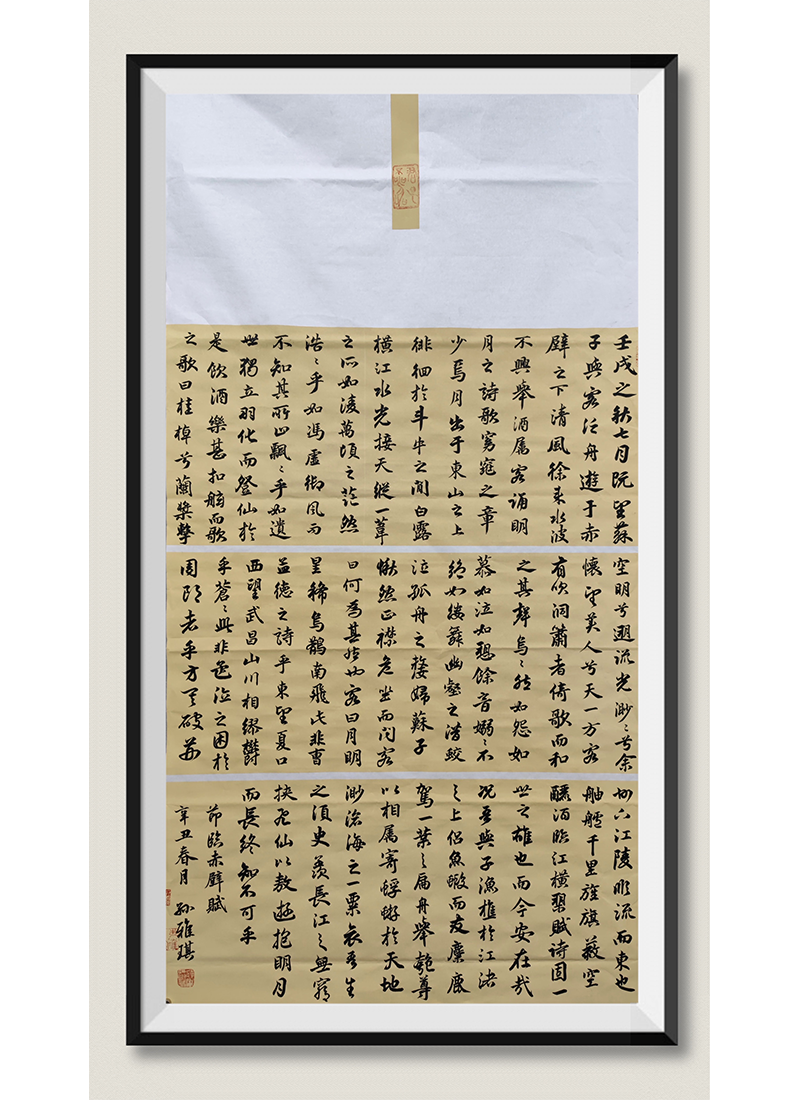 壬戌之秋七月既望蘇
子與客泛舟遊于赤
壁之下清風徐來水波
不興舉酒屬客誦明
月之詩歌窈窕之章
少焉月出于東山之上
徘徊於斗牛之間白露
橫江水光接天縱一葦
之所如淩萬頃之茫然
浩〻乎如馮虛御風而
不知其所止飄〻乎如遺
世獨立羽化而登仙於
是飲酒樂甚扣舷而歌
之歌曰桂棹兮蘭槳擊
空明兮遡流光渺〻兮余
懷望美人兮天一方客
有吹洞蕭者倚歌而和
之其聲烏〻然如怨如
慕如泣如愬餘音嫋〻不
絕如縷舞幽壑之潛蛟
泣孤舟之嫠婦蘇子
愀然正襟危坐而問客
曰何為其然也客曰月明
星稀烏鵲南飛此非曹
孟德之詩乎東望夏口
西望武昌山川相繆欝
乎蒼〻此非孟德之困於
周郎者乎方其破荊
州下江陵順流而東也
舳艫千里旌旗蔽空
釃酒臨江橫槊賦诗固一
世之雄也而今安在哉
況吾與子漁樵於江渚
之上侶魚蝦而友麋鹿
駕一葉之扁舟舉匏尊
以相屬寄蜉蝣於天地
渺滄海之一粟哀吾生
之須臾羨長江之無窮
挾飛仙以敖遊抱明月
而長終知不可乎
節臨赤壁賦
辛丑春月 孙雅琪